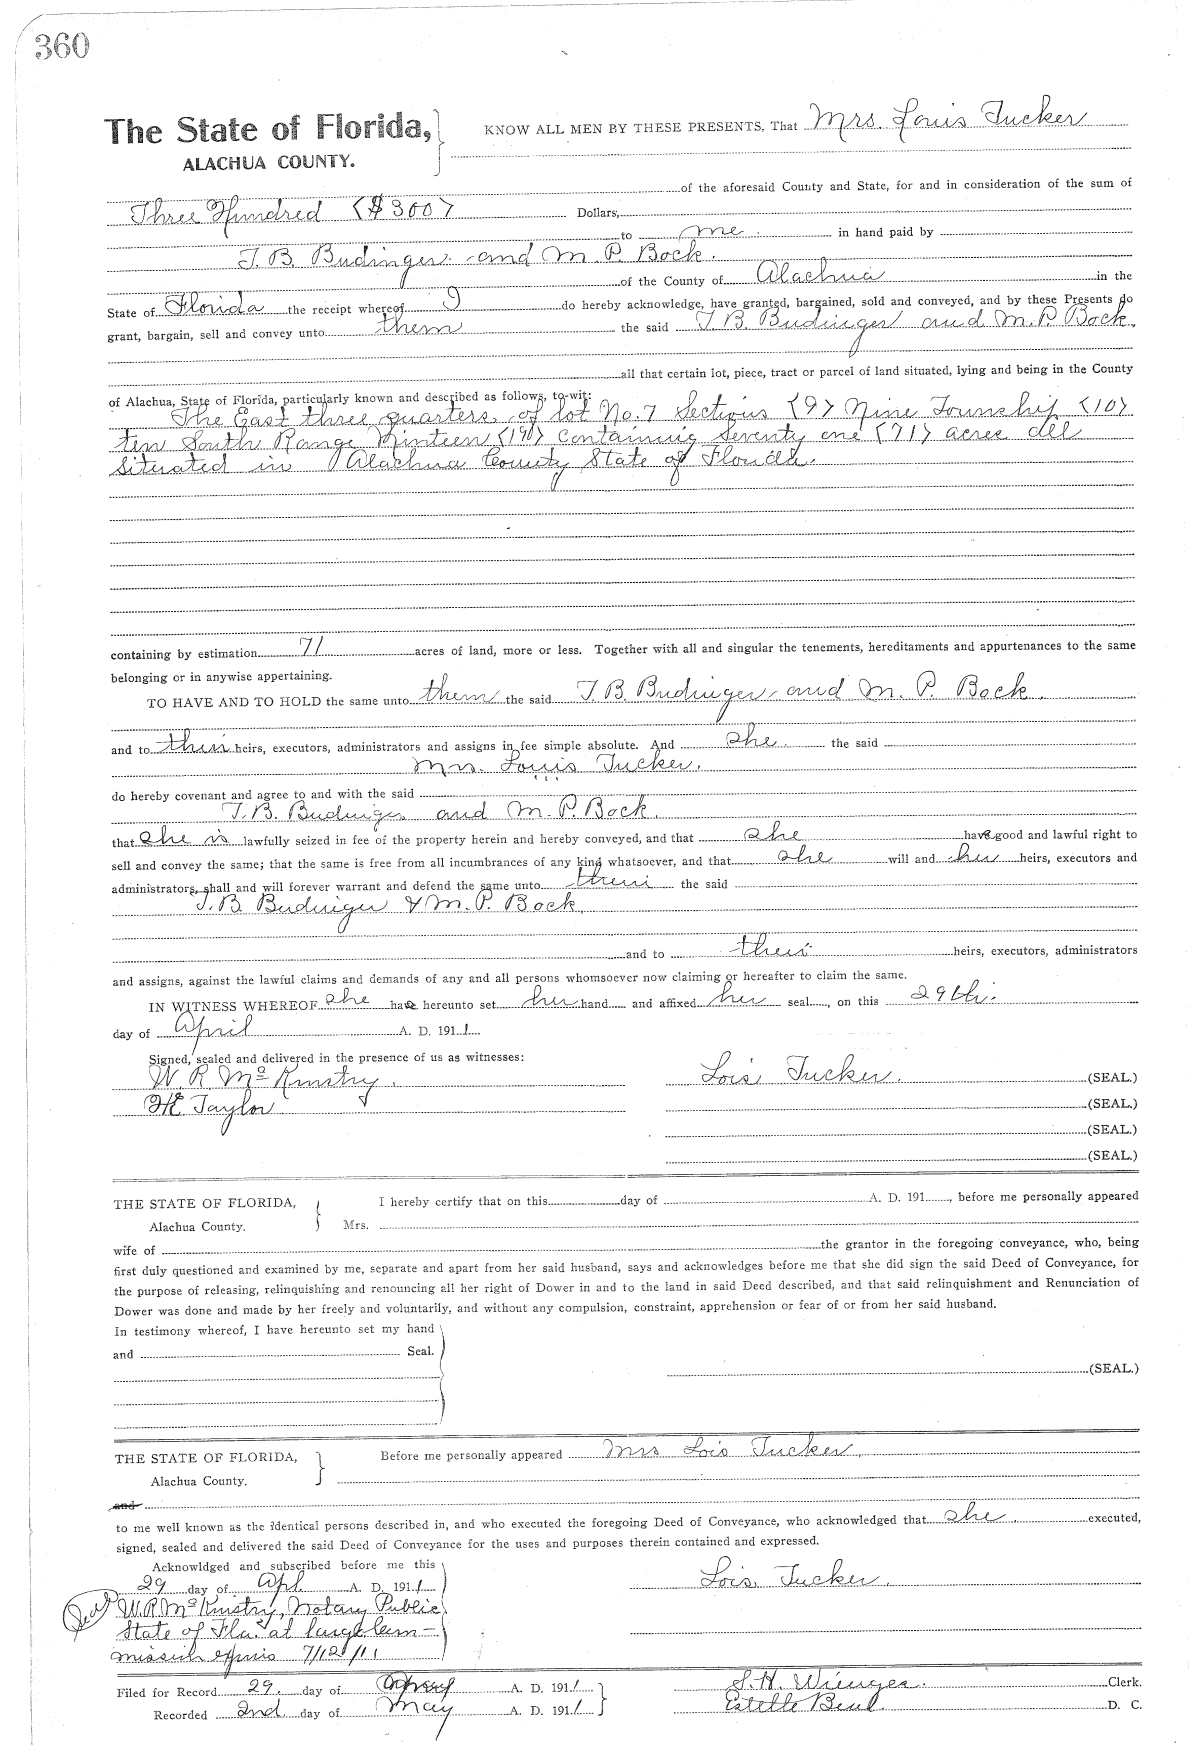 360
The State of Florida,
ALACHUA COUNTY.
KNOW ALL MEN BY THESE PRESENTS, That Mrs. Louis Tucker
of the aforesaid County and State, for and in consideration of the sum of
Three Hundred ($300) Dollars,
to me in hand paid by
T. B. Budinger and M. P. Bock.
of the County of Alachua in the
State of Florida the receipt whereof I do hereby acknowledge, have granted, bargained, sold and conveyed, and by these Presents do
grant, bargain, sell and convey unto them the said T. B. Budinger and M. P. Bock.
all that certain lot, piece, tract or parcel of land situated, lying and being in the County
of Alachua, State of Florida, particularly known and described as follows, to-wit:
The East three quarters of lot No. 7 Sections (9) Nine Township (10)
ten South Range Ninteen (19) containing Seventy one (71) acre all
situated in Alachua County State of Florida.
containing by estimation 71 acres of land, more or less. Together with all and singular the tenements, hereditaments and appurtenances to the same
belonging or in anywise appertaining.
TO HAVE AND TO HOLD the same unto them the said T. B. Budinger and M. P. Bock.
and to their heirs, executors, administrators and assigns in fee simple absolute. And she the said
Mrs. Louis Tucker.
do hereby covenant and agree to and with the said
T. B. Budinger and M. P. Bock.
that she is lawfully seized in fee of the property herein and hereby conveyed, and that she have good and lawful right to
sell and convey the same; that the same is free from all incumbrances of any kind whatsoever, and that she will and her heirs, executors and
administrators, shall and will forever warrant and defend the same unto them the said
T. B. Budinger & M. P. Bock
and to their heirs, executors, administrators
and assigns, against the lawful claims and demands of any and all persons whomsoever now claiming or hereafter to claim the same.
IN WITNESS WHEREOF she have hereunto set her hand and affixed her seal, on this 29th.
day of April A. D. 1911
Signed, sealed and delivered in the presence of us as witnesses:
W R McKinstry. Lois Tucker. (SEAL.)
Taylor (SEAL.)
(SEAL.)
(SEAL.)
THE STATE OF FLORIDA,
Alachua County.
I hereby certify that on this day of A. D. 191, before me personally appeared
Mrs.
wife of the grantor in the foregoing conveyance, who, being
first duly questioned and examined by me, separate and apart from her said husband, says and acknowledges before me that she did sign the said Deed of Conveyance, for
the purpose of releasing, relinquishing and renouncing all her right of Dower in and to the land in said Deed described, and that said relinquishment and Renunciation of
Dower was done and made by her freely and voluntarily, and without any compulsion, constraint, apprehension or fear of or from her said husband.
In testimony whereof, I have hereunto set my hand
and Seal.
(SEAL.)
THE STATE OF FLORIDA,
Alachua County.
Before me personally appeared Mrs Lois Tucker,
and
to me well known as the identical persons described in, and who executed the foregoing Deed of Conveyance, who acknowledged that she executed,
signed, sealed and delivered the said Deed of Conveyance for the uses and purposes therein contained and expressed.
Acknowldged and subscribed before me this
29 day of Apl A. D. 1911
Lois Tucker.
Seal W. R. McKinstry, Notary Public
State of Fla. at large Com-
mission expires 7/12/11
Filed for Record 29. day of A. D. 1911 S. H. Wienges. Clerk.
Recorded 2nd day of May A. D. 1911 Estelle D. C.